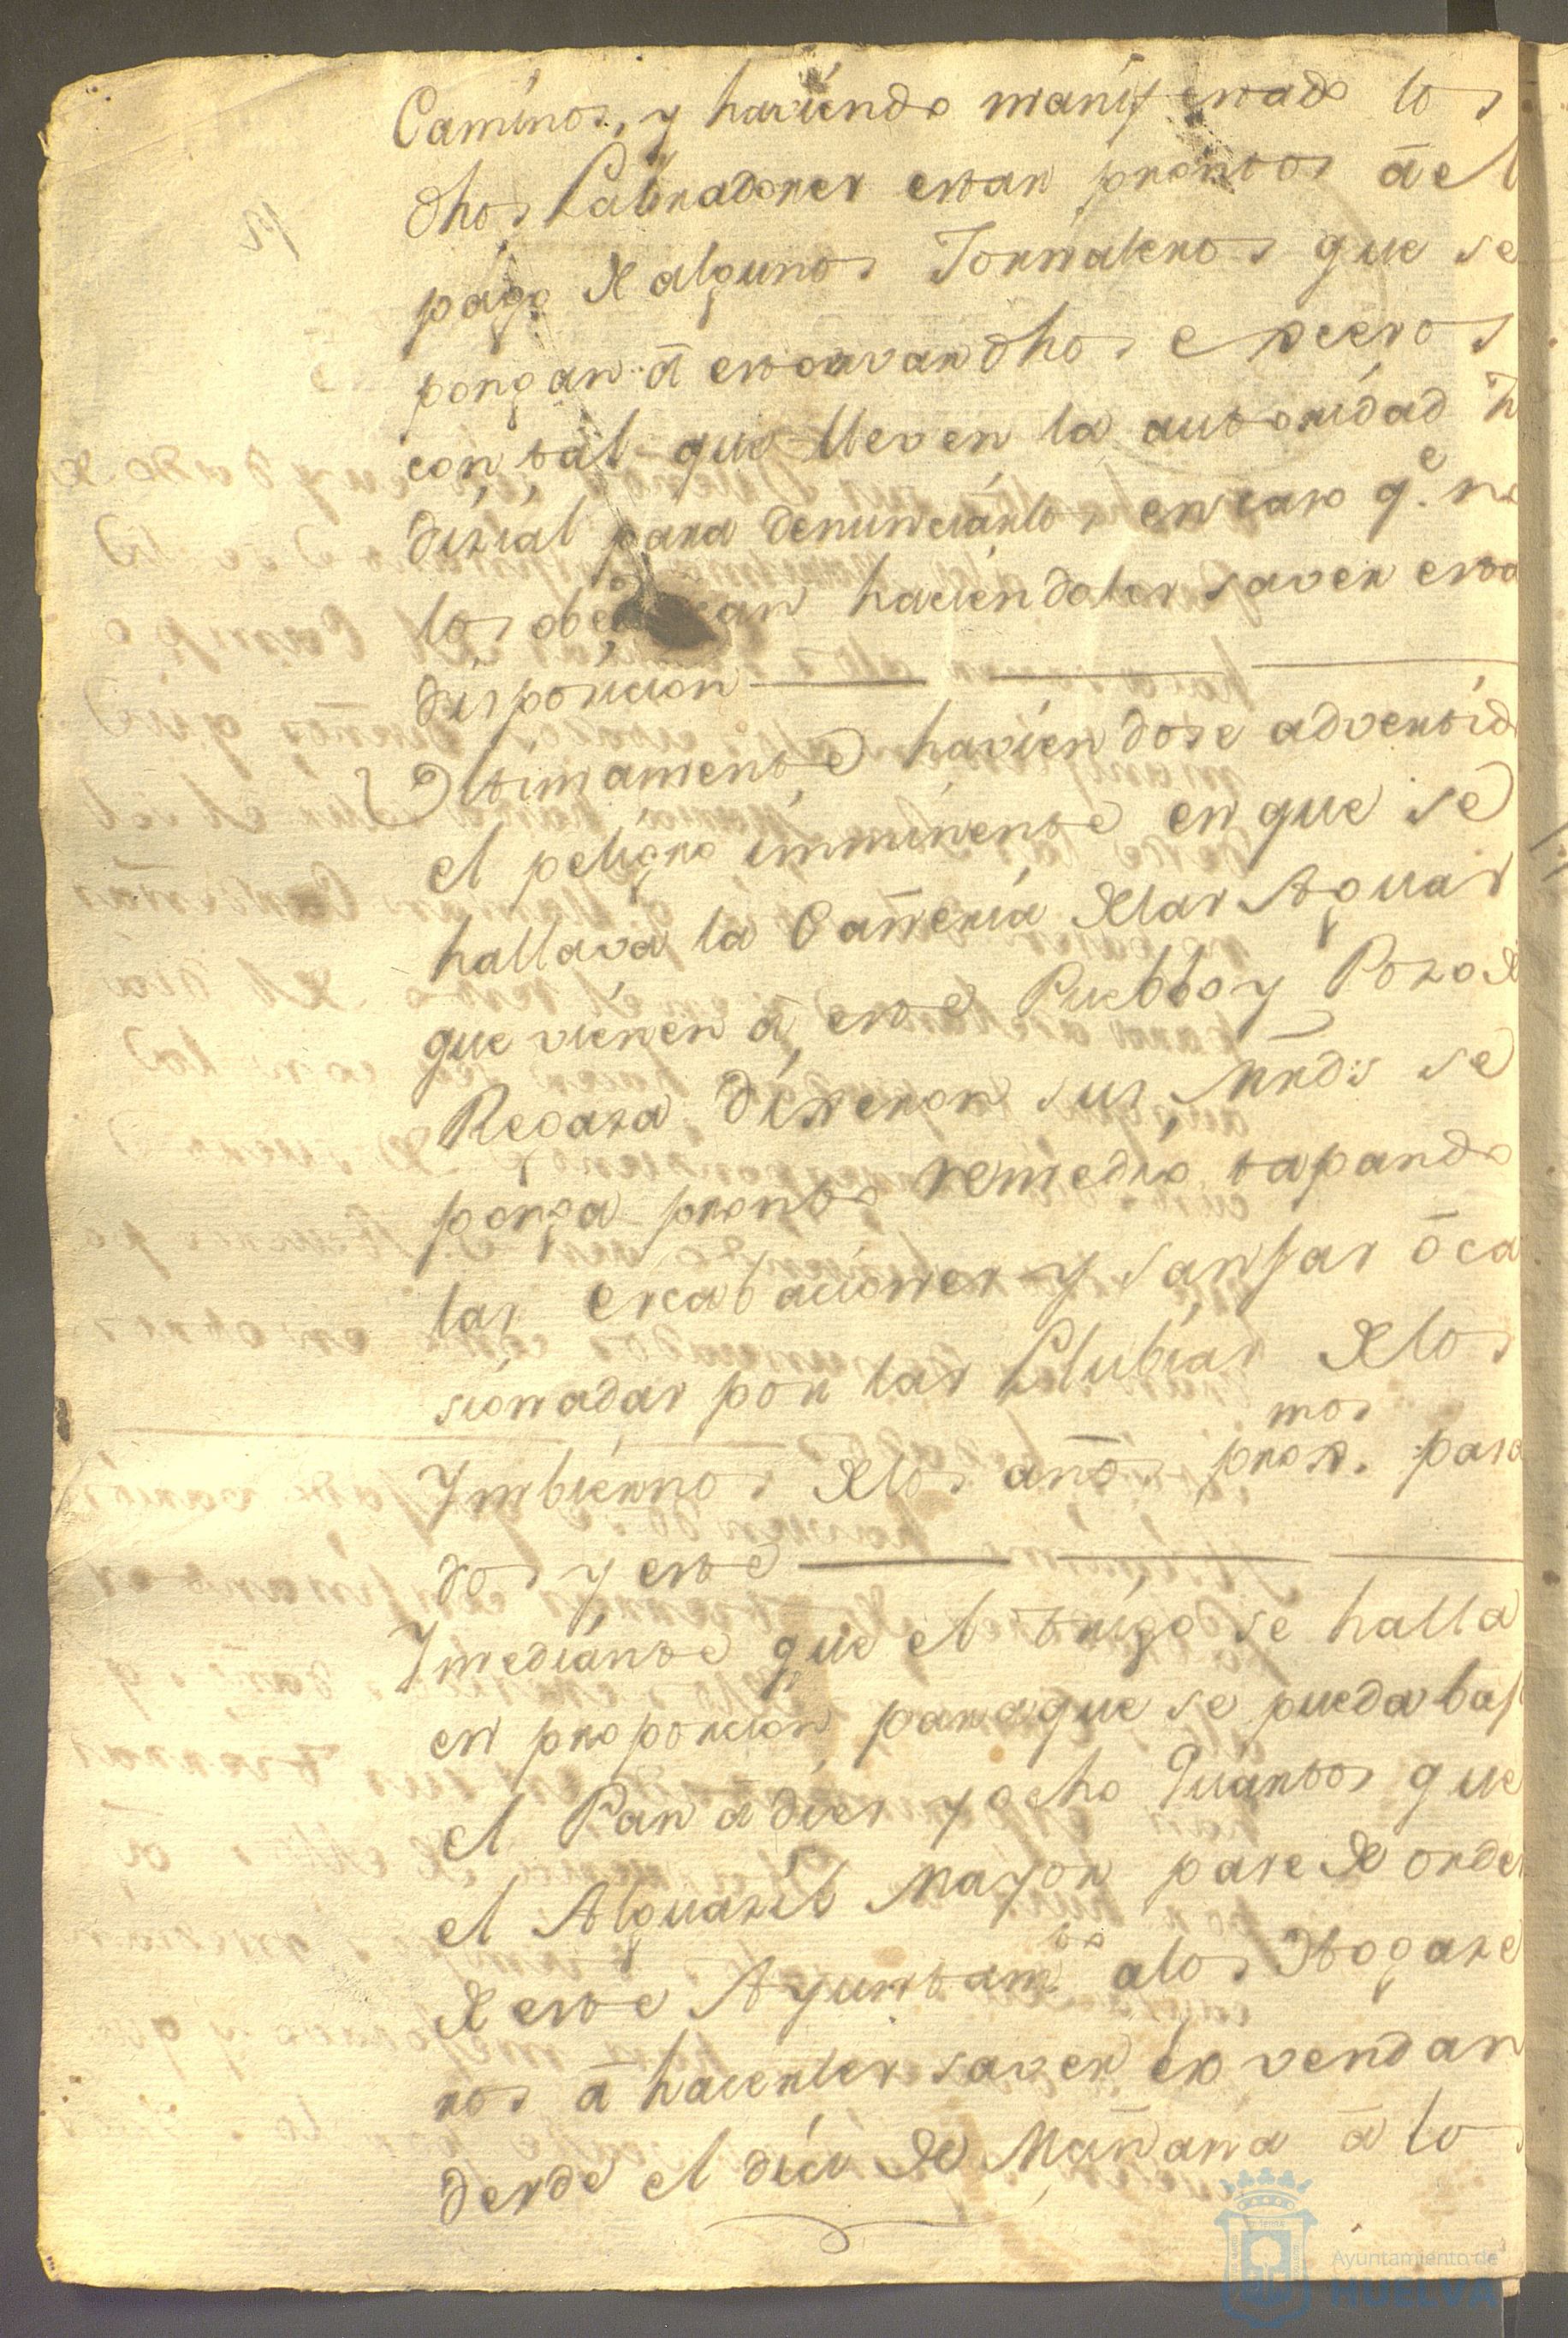 Caminos, y haviendo manifestado los
dhos Labradores estar prontos â el
pago de algunos Jornaleros que se
pongan â estorvar dhos excesos
con tal que lleven la autoridad Ju
disial para denunciarlos en caso q.e no
los obedezcan haciendoles saver esta
disposicion
Vltimamente haviendose advertido
el peligro imminente en que se
hallava la Cañeria de las Aguas
que vienen â este Puebblo y Pozo de
Regaza dixeron sus Mrds se
ponga pronto remedio tapando
las Excabaciones y sanjas ôca
sionadas por las Llubias de los
Ymbiernos de los años prox.mos pasa
dos y este
Y mediante que el trigo se halla
en proporcion para que se pueda baj
el Pan a dies y ocho Quartos que
el Alguazil Mayor pase de orden
de este Ayuntam.to a los Atogaze
ros â hacerles saver lo vendan
desde el dia de Mañana â los
Ayuntamiento de
HUELVA